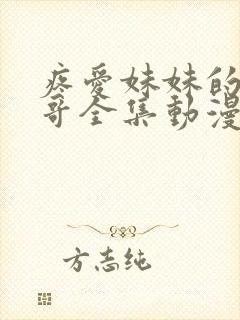 疼愛妹妹的
哥全集動漫
方志纯